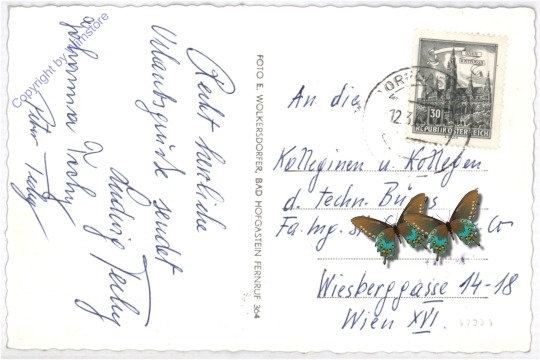 Recht herzliche
Urlaubsgrüße sendet
Ludwig Techy
Johanna Techy
Peter Techy
Copyright by Wimstore
FOTO E. WOLKERSDORFER, BAD HOFGASTEIN FERNRUF 364
WIEN
RATHAUS
30
REPUBLIK ÖSTERREICH
12.3
An die
Kolleginen u. Kollegen
d. techn. Büros
Fa. Ing.
Co
Wiesberggasse 14-18
Wien XVI.